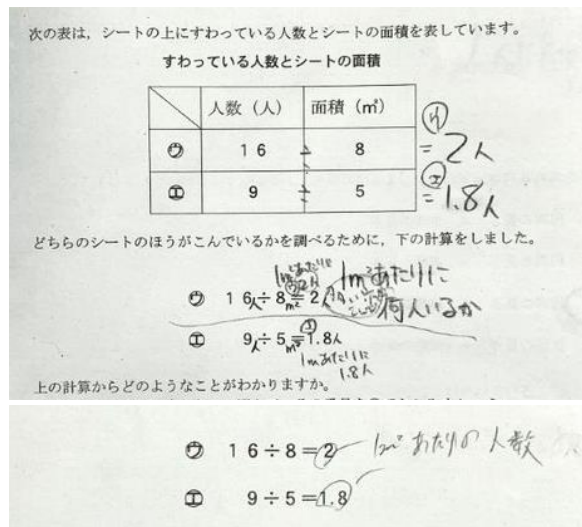 次の表は，シートの上にすわっている人数とシートの面積を表しています。
すわっている人数とシートの面積
人数（人） 面積（㎡）
㋒ 16 ÷ 8 = 2人
㋓ 9 ÷ 5 = 1.8人
どちらのシートのほうがこんでいるかを調べるために，下の計算をしました。
1㎡あたりに
㋒ 16人÷8㎡=2人 1m²あたりに
何人いるか
㋓ 9人÷5㎡=1.8人
1mあたりに
1.8人
上の計算からどのようなことがわかりますか。
㋒ 16÷8=2 1m²あたりの人数
㋓ 9÷5=1.8